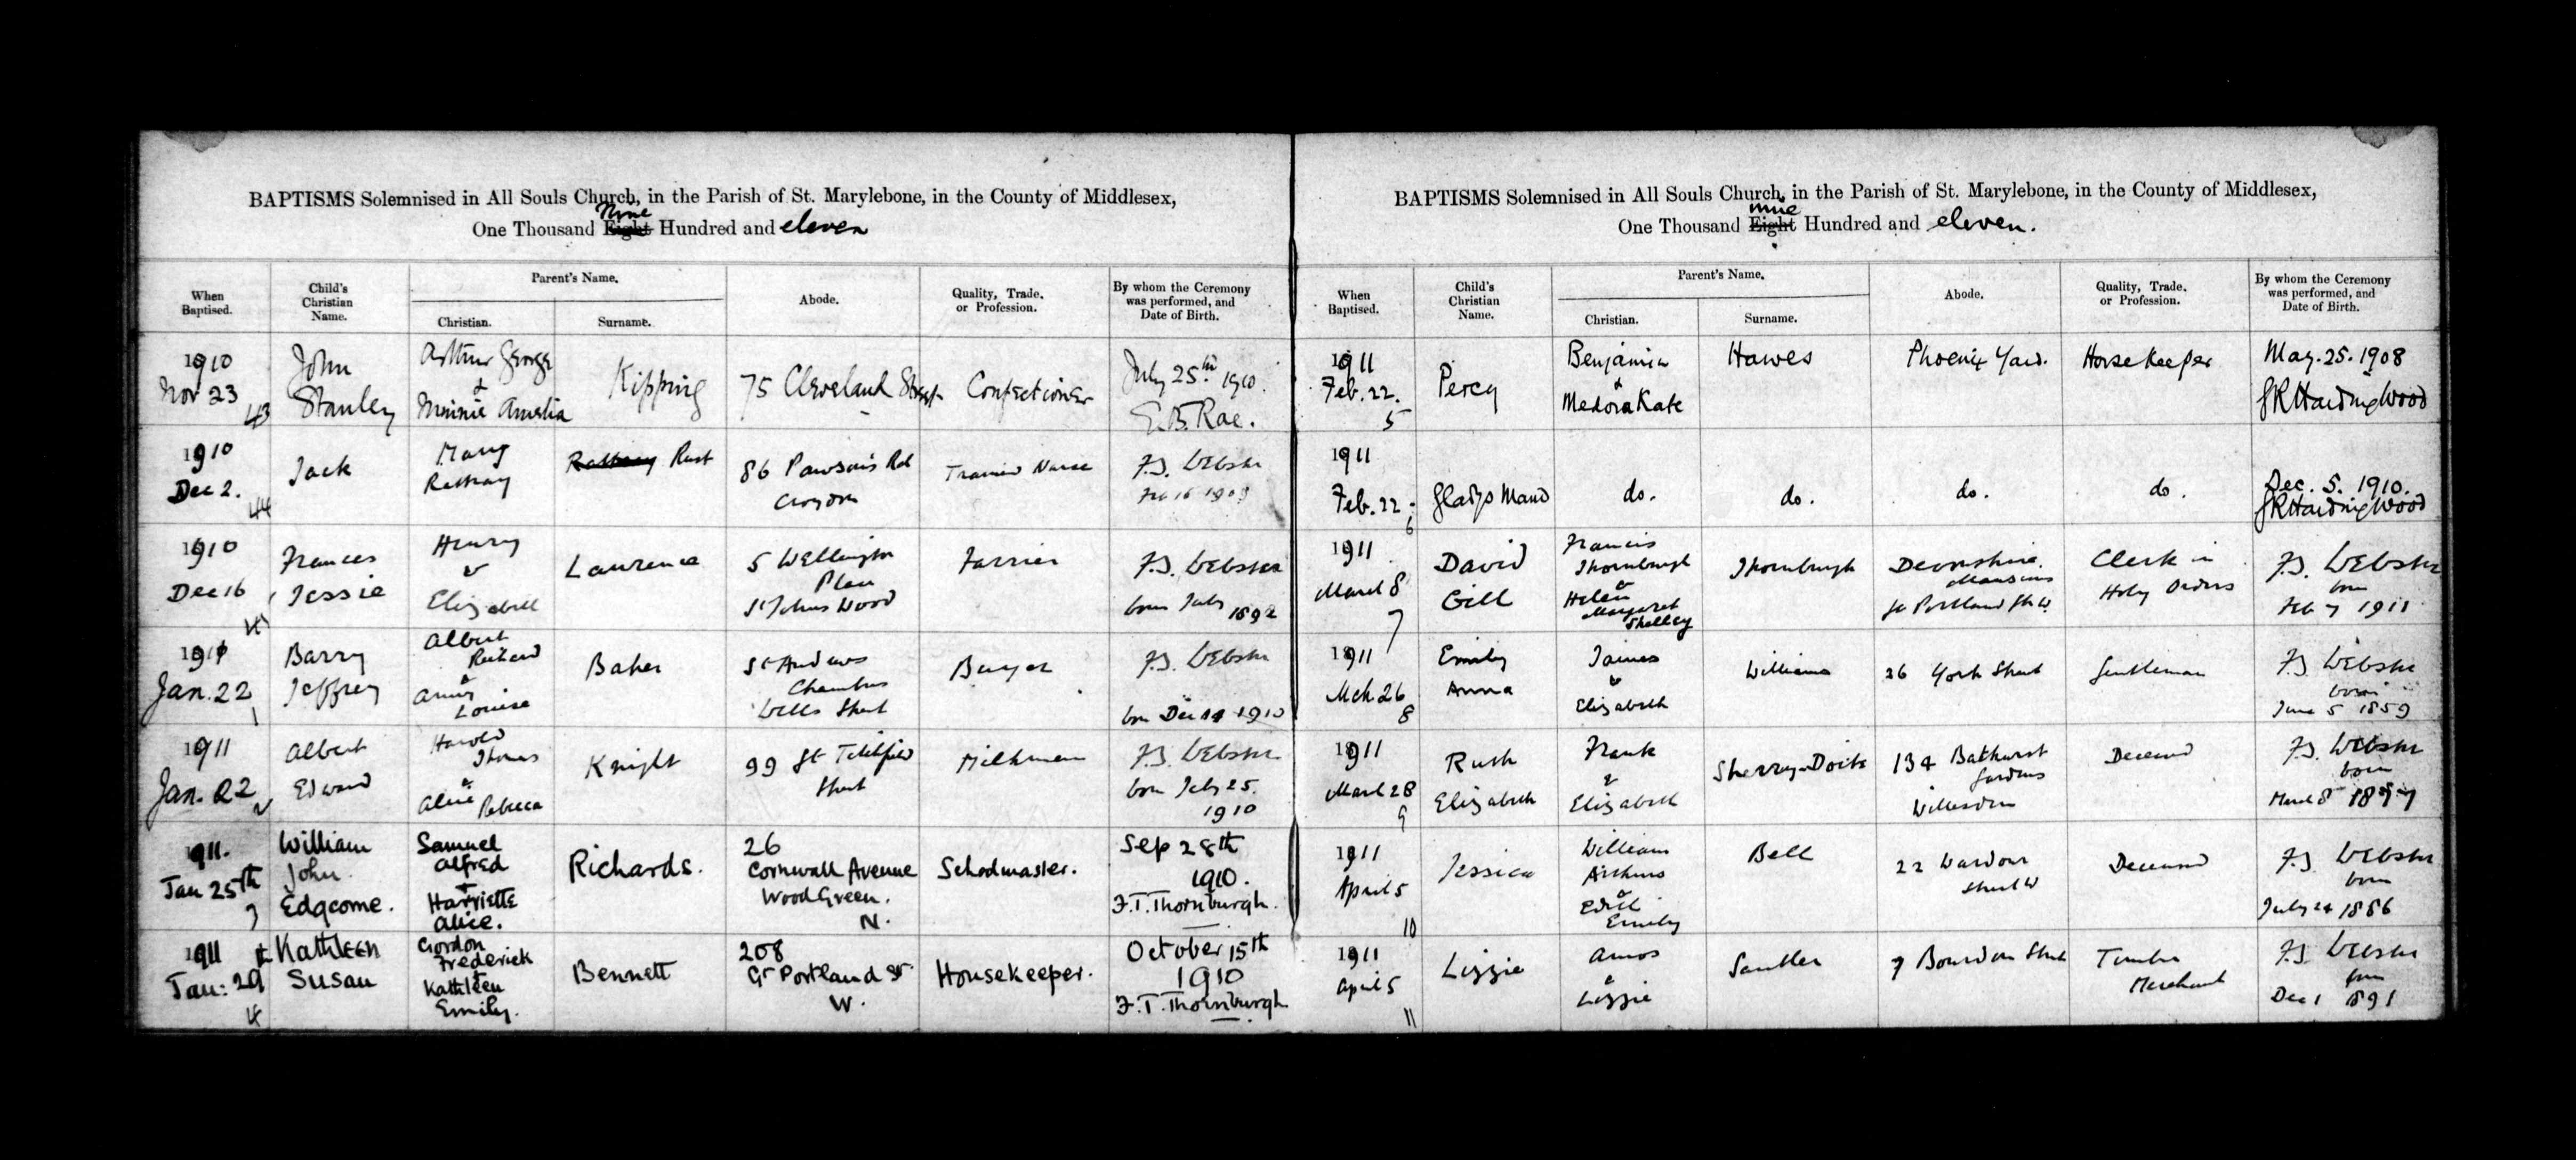 BAPTISMS Solemnised in All Souls Church, in the Parish of St. Marylebone, in the County of Middlesex,
One Thousand Eight Nine Hundred and eleven
When Baptised.
Child's Christian Name.
Parent's Name.
Christian.
Surname.
Abode.
Quality, Trade. or Profession.
By whom the Ceremony was performed, and Date of Birth.
1910
Nov 23
43
John
Stanley
Arthur George
&
Minnie Amelia
Kipping
75 Cleveland Street
Confectioner
July 25th 1910.
E.B. Rae.
1910
Dec 2.
44
Jack
Mary
Rathray
Rust
86 Pawsons Rd
Croydon
Trained Nurse
F.S. Webster
Feb 16 1909
1910
Dec 16
Frances
Jessie
Henry
&
Elizabeth
Laurence
5 Wellington
Place
St Johns Wood
Farrier
F.S. Webster
born July
1892
1911
Jan. 22
1
Barry
Jeffrey
Albert
Richard
&
Louise
Baker
St Andrews
Chambers
Wells Street
Buyer
F.S. Webster
born Dec 14 1910
1911
Jan. 22
2
Albert
Edward
Harold
Thomas
&
Alice Rebecca
Knight
99 Gt Titchfield
Street
Milkman
F.S. Webster
born July 25.
1910
1911.
Jan 25th
3
William
John
Edgcome.
Samuel
Alfred
&
Harriette
Alice.
Richards.
26
Cornwall Avenue
Wood Green.
N.
Schoolmaster.
Sep 28th
1910.
F.T. Thornburgh.
1911
Jan: 29
4
Kathleen
Susan
Gordon
Frederick
&
Kathleen
Emily.
Bennett
208
Gt Portland St.
W.
Housekeeper.
October 15th
1910
F.T. Thornburgh
BAPTISMS Solemnised in All Souls Church, in the Parish of St. Marylebone, in the County of Middlesex,
One Thousand Eight nine Hundred and eleven.
When Baptised.
Child's Christian Name.
Parent's Name.
Christian.
Surname.
Abode.
Quality, Trade. or Profession.
By whom the Ceremony was performed, and Date of Birth.
1911
Feb. 22.
5
Percy
Benjamin
&
Medora Kate
Hawes
Phoenix Yard.
Horse Keeper
May. 25. 1908
G R Harding Wood
1911
Feb. 22.
6
Gladys Maud
do.
do.
do.
do.
Dec. 5. 1910.
G R Harding Wood
1911
March 8
7
David
Gill
Francis
Thornburgh
&
Helen
Margaret
Shelley
Thornburgh
Devonshire
Mansions
Gt Portland St W.
Clerk in
Holy Orders
F.S. Webster
born
Feb 7 1911
1911
Mch 26
8
Emily
Anna
James
&
Elizabeth
Williams
26 York Street
Gentleman
F.S. Webster
born
June 5 1859
1911
March 28
9
Ruth
Elizabeth
Frank
&
Elizabeth
134 Bathurst
Gardens
Willesden
Deceased
F.S. Webster
born
March 8 1877
1911
April 5
10
Jessica
William
Arthur
&
Edith
Emily
Bell
22 Wardour
Street W
Deceased
F.S. Webster
born
July 24 1886
1911
April 5
11
Lizzie
Amos
&
Lizzie
7 Bourdon Street
Timber
Merchant
F.S. Webster
born
Dec 1 1891